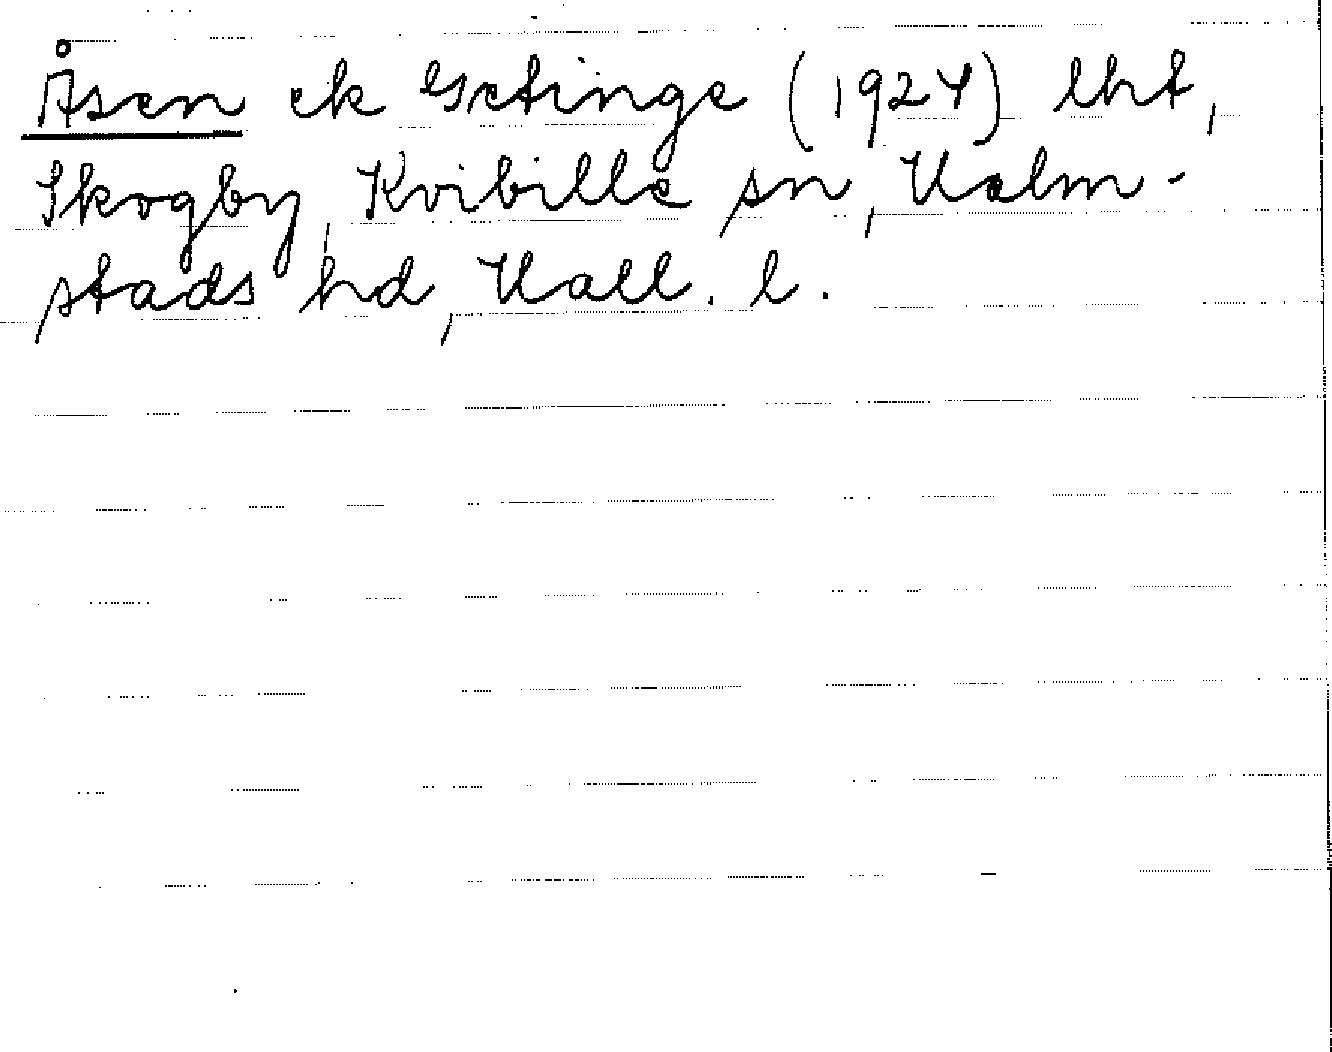 Åsen ek Getinge (1924) lht,
Skogby, Kvibille sn, Halm-
stads hd, Hall. l.